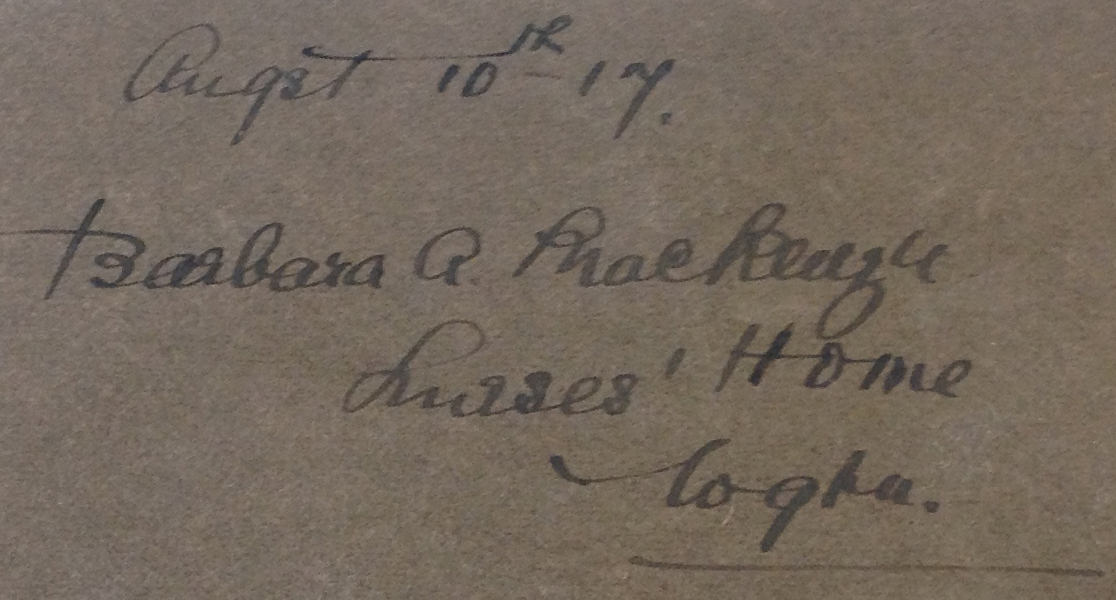 Augst 10th - 17.
Barbara A. MacKenzie
Nurses' Home